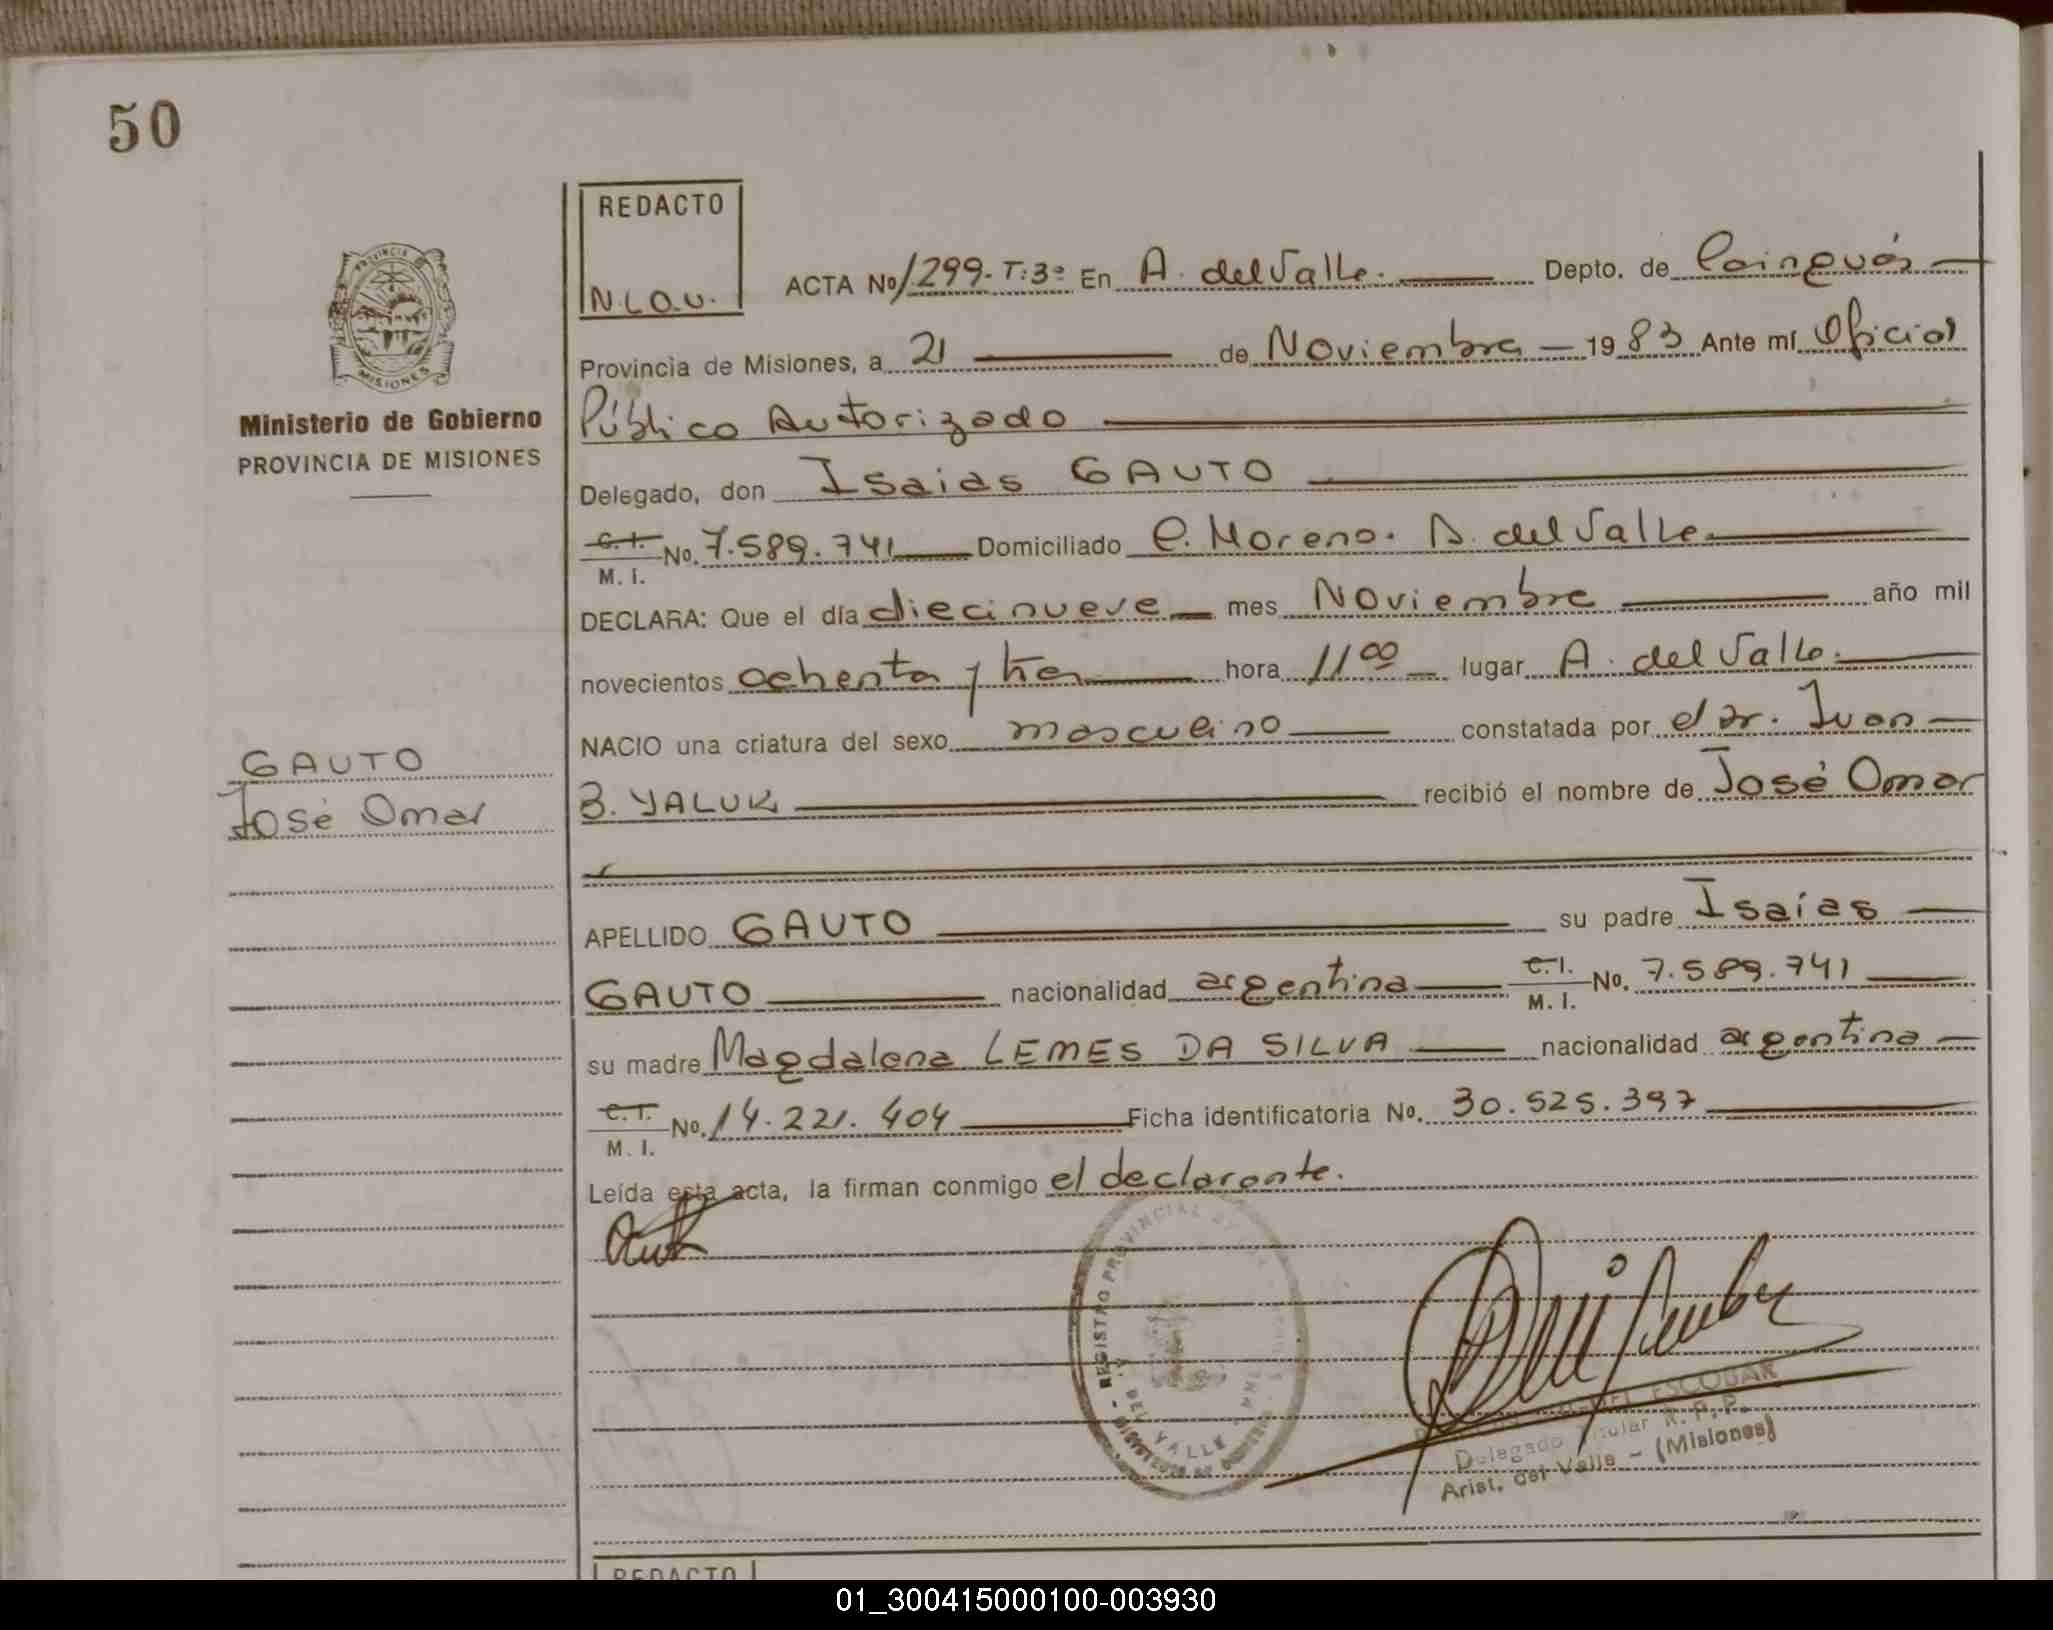 50
REDACTO
N.L.O.V.
PROVINCIA DE MISIONES
Ministerio de Gobierno
PROVINCIA DE MISIONES
ACTA No 1.299. T:3º En A. del Valle. Depto. de Cainguás
Provincia de Misiones, a 21 de Noviembre 1983 Ante mí Oficial
Público Autorizado
Delegado, don Isaias GAUTO
C. I. M. I. No. 7.589.741 Domiciliado C. Moreno. A. del Valle
DECLARA: Que el día diecinueve mes Noviembre año mil
novecientos ochenta y tres hora 11 00 lugar A. del Valle.
NACIO una criatura del sexo masculino constatada por el Dr. Juan
B. YALUK recibió el nombre de José Omar
GAUTO
José Omar
APELLIDO GAUTO su padre Isaías
GAUTO nacionalidad argentina C. I. M. I. No. 7.589.741
su madre Magdalena LEMES DA SILVA nacionalidad argentina
C. I. M. I. No. 14.221.404 Ficha identificatoria No. 30.525.397
Leída esta acta, la firman conmigo el declarante.
REGISTRO PROVINCIAL DE
DEL VALLE
ESCOBAR
Delegado Titular R. P. P.
Arist. del Valle - (Misiones)
REDACTO
01_300415000100-003930